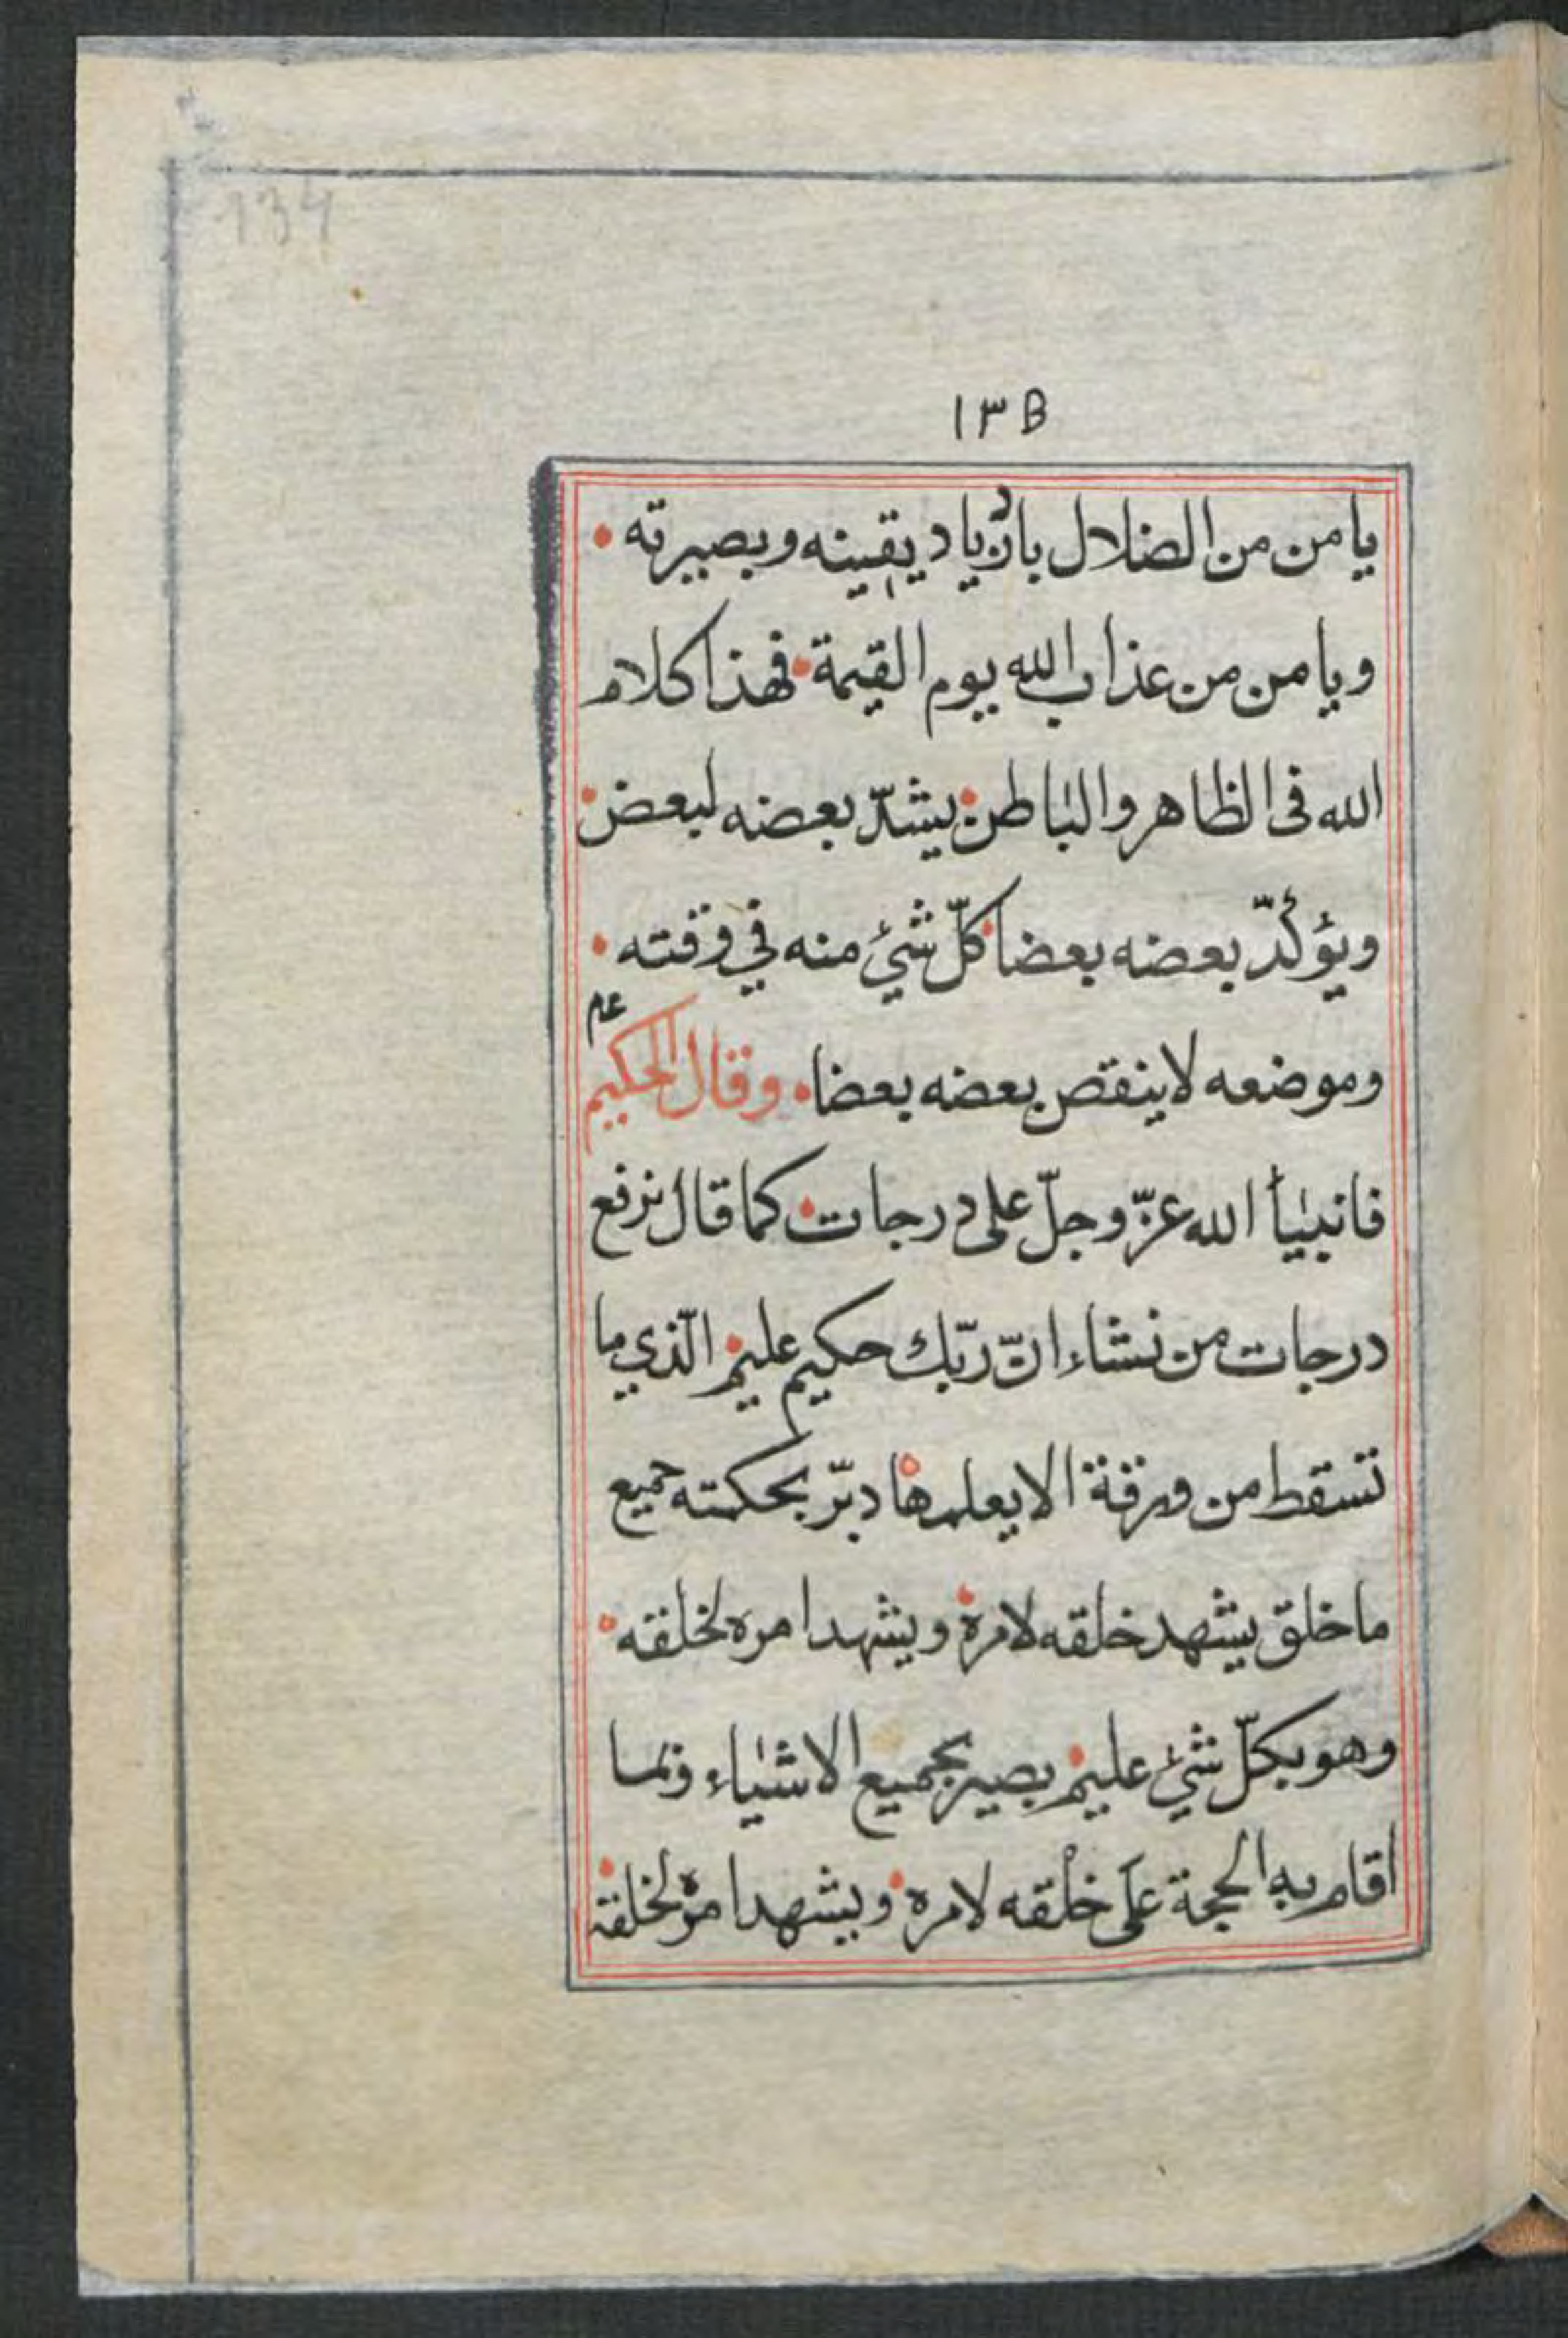 134
١٣٥
يامن من الضلال بازدياد يقينه وبصيرته •
ويامن من عذاب الله يوم القيمة • فهذا كلام
الله في الظاهر والباطن • يشدّ بعضه لبعض •
ويؤكّد بعضه بعضا • كلّ شيئ منه في وقته •
وموضعه لاينقض بعضه بعضا • وقال الحكيم عم
فانبياأ الله عزّ وجلّ على درجات • كما قال نرفع
درجات من نشاء انّ ربّك حكيم عليم • الّذي ما
تسقط من ورقة الا يعلمها • دبّر بحكمته جميع
ما خلق يشهد خلقه لامره • ويشهد امره لخلقه •
وهو بكلّ شيئ عليم • بصير بجميع الاشياء ومما
اقام به الحجة على خلقه لامره • ويشهد امره لخلقه •